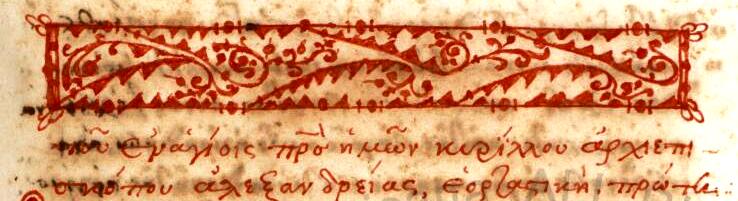 τοῦ ἐν ἁγίοις πρ̅ς ἡμῶν κυρίλλου ἀρχιεπι
σκόπου ἀλεξανδρείας, ἑορταστικὴ πρώτη: